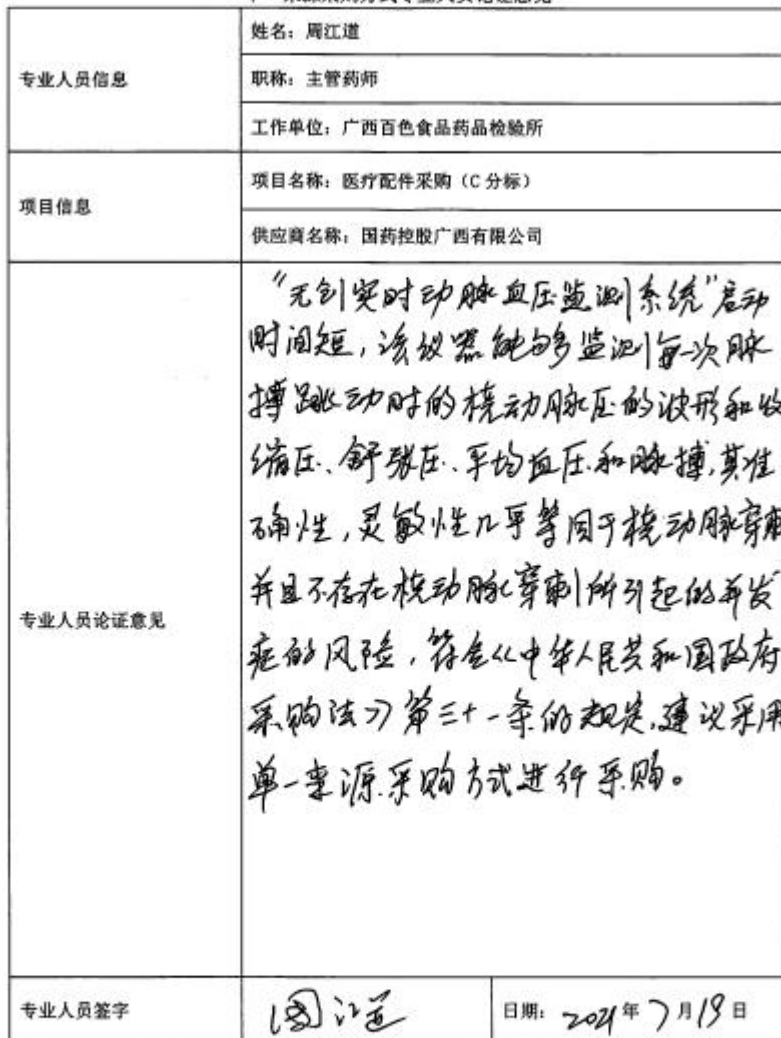 姓名：周江道
专业人员信息
职称：主管药师
工作单位：广西百色食品药品检验所
项目信息
项目名称：医疗配件采购（C 分标）
供应商名称：国药控股广西有限公司
专业人员论证意见
“无创实时动脉血压监测系统”启动
时间短，该仪器能够多监测每一次脉
搏跳动时的桡动脉压的波形和收
缩压、舒张压、平均血压和脉搏，其准
确性，灵敏性几乎等同于桡动脉穿刺
并且不存在桡动脉穿刺所引起的并发
症的风险，符合《中华人民共和国政府
采购法》第三十一条的规定，建议采用
单一来源采购方式进行采购。
专业人员签字
周江道
日期：2021年7月19日